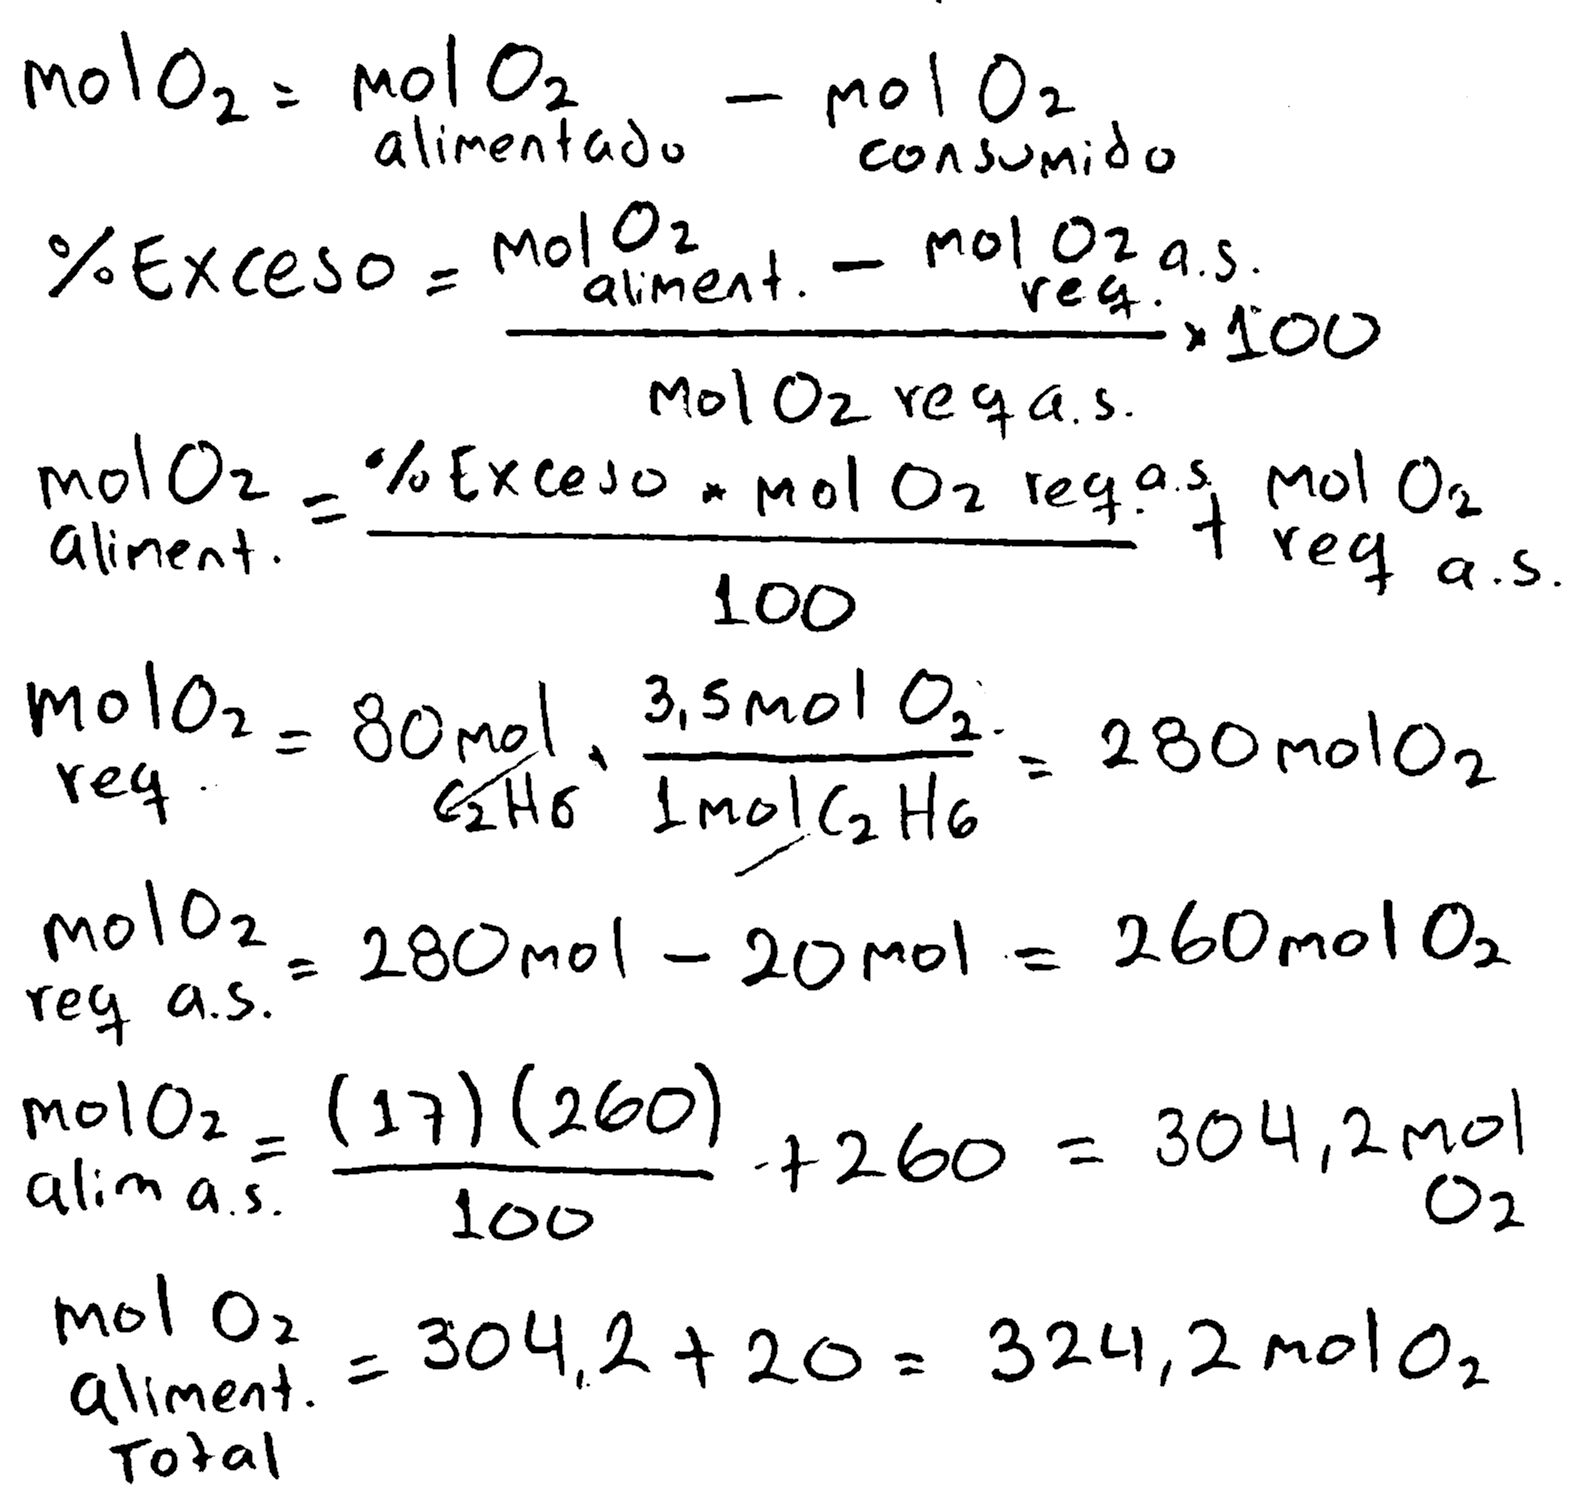 mol O2 = mol O2 alimentado - mol O2 consumido
%Exceso = mol O2 aliment. - mol O2 req. a.s.
* 100
Mol O2 req a.s.
mol O2 aliment. = %Exceso * mol O2 req. a.s. + mol O2 req a.s.
100
mol O2 req. = 80 mol C2H6 . 3,5 mol O2 = 280 mol O2
1 mol C2H6
mol O2 req a.s. = 280 mol - 20 mol = 260 mol O2
mol O2 alim a.s. = (17)(260) + 260 = 304,2 mol O2
100
mol O2 aliment. Total = 304,2 + 20 = 324,2 mol O2